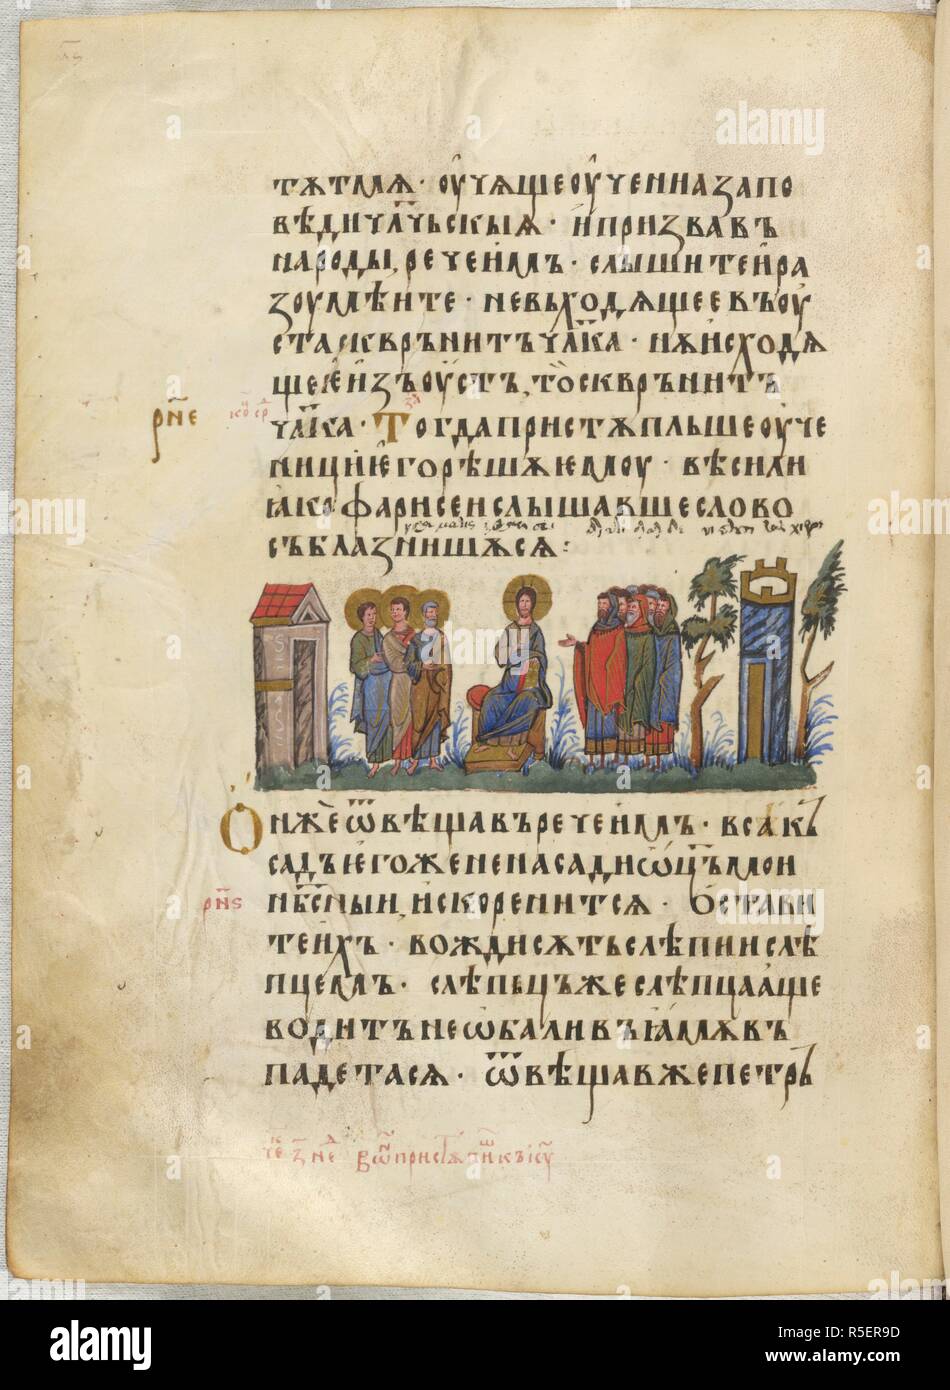 тѫтмѧ · оучѧще оучениꙗ запо
вѣди чл҃чьскыѧ · и призвавъ
народы, рече имъ · слышите и ра
зоумѣите · не въходѧщее въ оу
ста сквърнитъ чл҃ка · нѫ исходѧ
щеѥ изъ оустъ, то сквърнитъ
рн҃е
чл҃ка · Тогда пристѫпльше оуче
ници ѥго рѣшѧ ѥмоу · вѣси ли
ꙗко фарисеи слышавше слово
съблазнишѧсѧ :
Онъ же ѿвѣщавъ рече имъ · всакъ
садъ ѥгоже не насади ѿц҃ъ мои
рн҃ѕ
нб҃сныи, искоренитсѧ · Остави
те ихъ · вождисѫтьслѣпиислѣ
пцемъ · слѣпьцъ же слѣпца аще
водитъ не ѡба ли въ ꙗмѫ въ
падетасѧ · ѿвѣщав же петръ
alamy
Image ID: R5ER9D
www.alamy.com